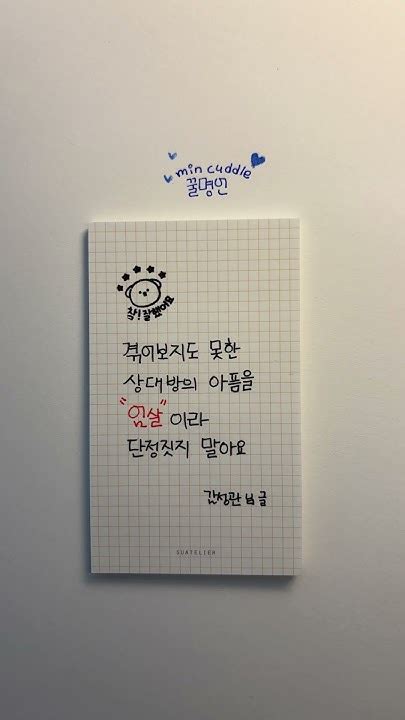 min cuddle
꿀명언
참!잘했어요
겪어보지도 못한
상대방의 아픔을
"엄살"이라
단정짓지 말아요
님 글
SUATELIER